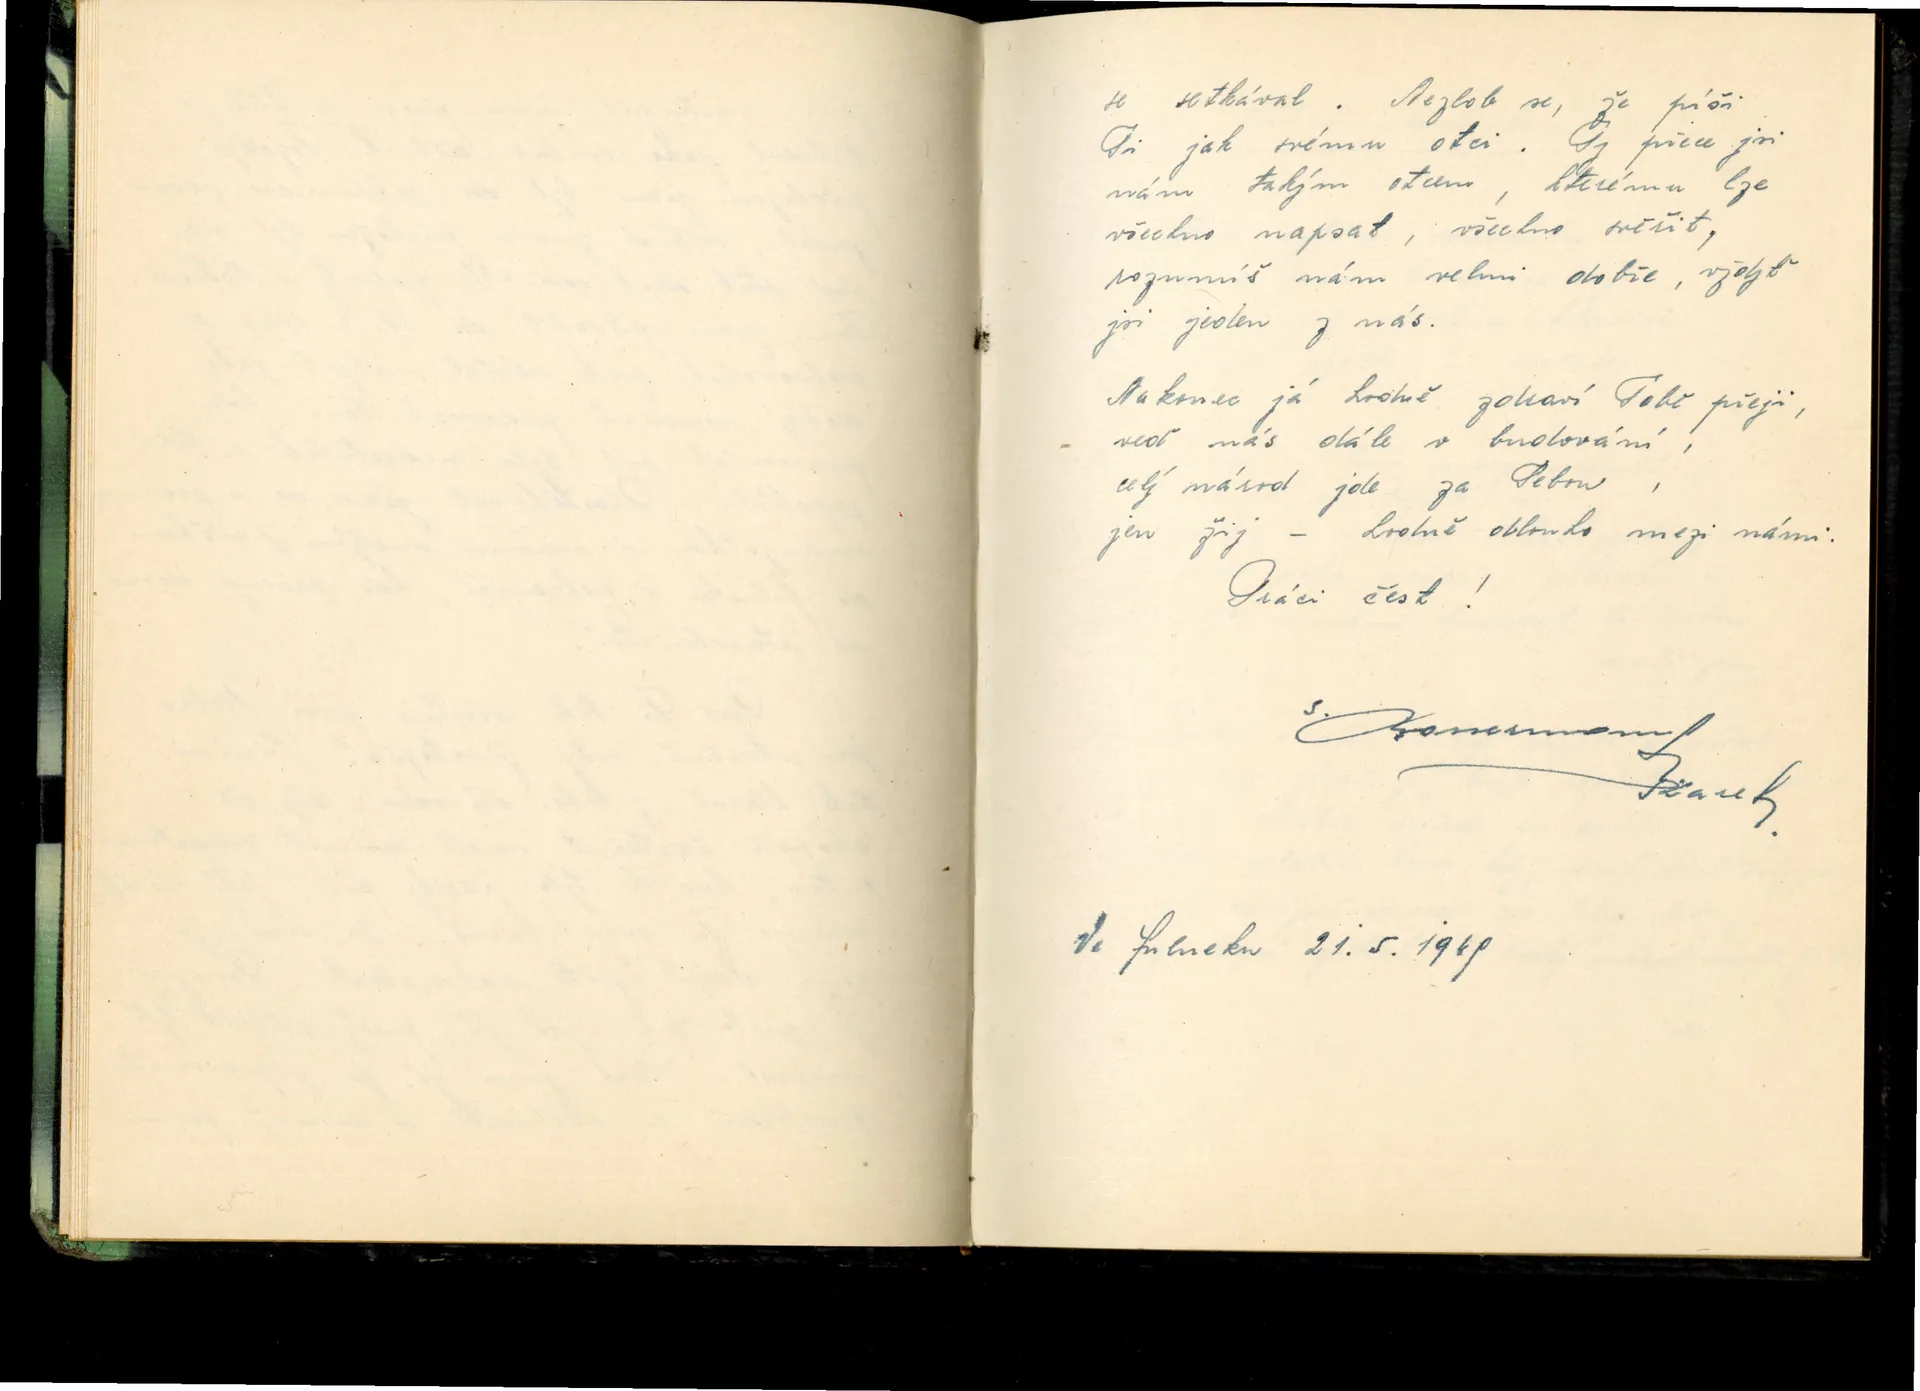 se setkával. Nezlob se, že píši
Ti jak svému otci. Ty přece jsi
nám takým otcem, kterému lze
všechno napsat, všechno svěřit,
rozumíš nám velmi dobře, vždyť
jsi jeden z nás.
Nakonec já hodně zdraví Tobě přeji,
veď nás dále v budování,
celý národ jde za Tebou,
jen žij – hodně dlouho mezi námi.
Práci čest!
s.
Ve Fulneku 21. 5. 1949
5